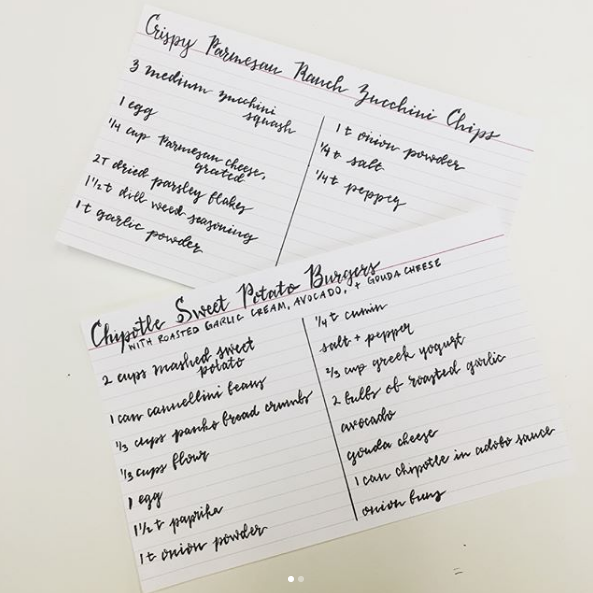 Crispy Parmesan Ranch Zucchini Chips
3 medium zucchini
squash
1 egg
1/4 cup Parmesan cheese,
grated
2T dried parsley flakes
1 1/2 t dill weed seasoning
1 t garlic powder
1 t onion powder
1/4 t salt
1/4 t pepper
Chipotle Sweet Potato Burgers
WITH ROASTED GARLIC CREAM, AVOCADO, + GOUDA CHEESE
2 cups mashed sweet
potato
1 can cannellini beans
1/3 cups panko bread crumbs
1/3 cups flour
1 egg
1 1/2 t paprika
1 t onion powder
1/4 t cumin
salt + pepper
2/3 cup greek yogurt
2 bulbs of roasted garlic
avocado
gouda cheese
1 can chipotle in adobo sauce
onion buns